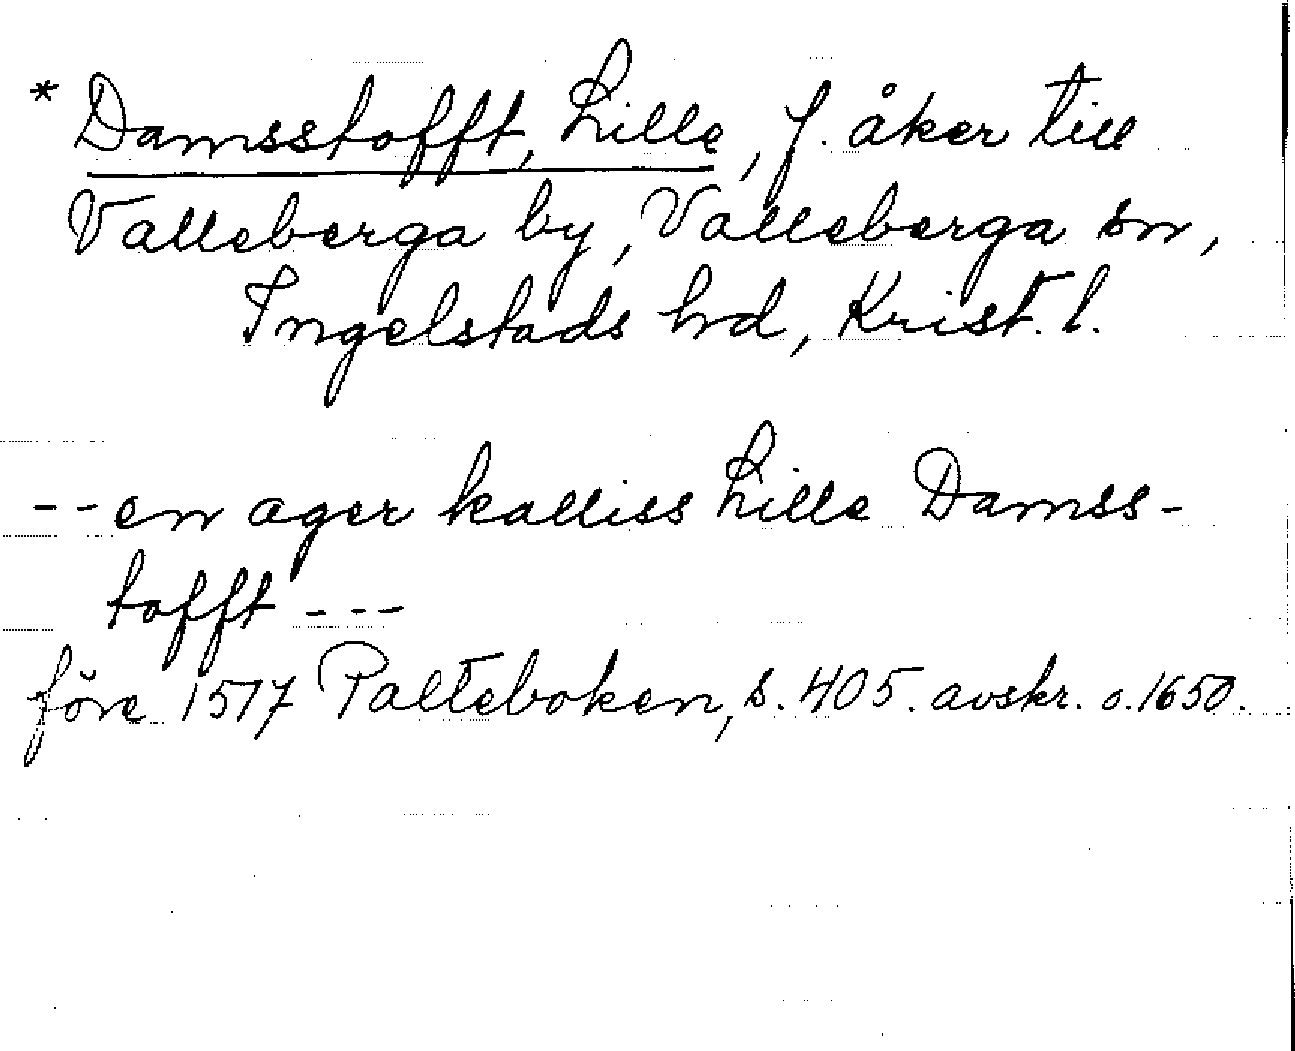 * Damsstofft, Lille, f. åker till
Valleberga by, Valleberga sn,
Ingelstads hd, Krist. l.
-- en ager kalliss Lille Damss-
tofft ---
före 1517 Palteboken, s. 405. avskr. o. 1650.